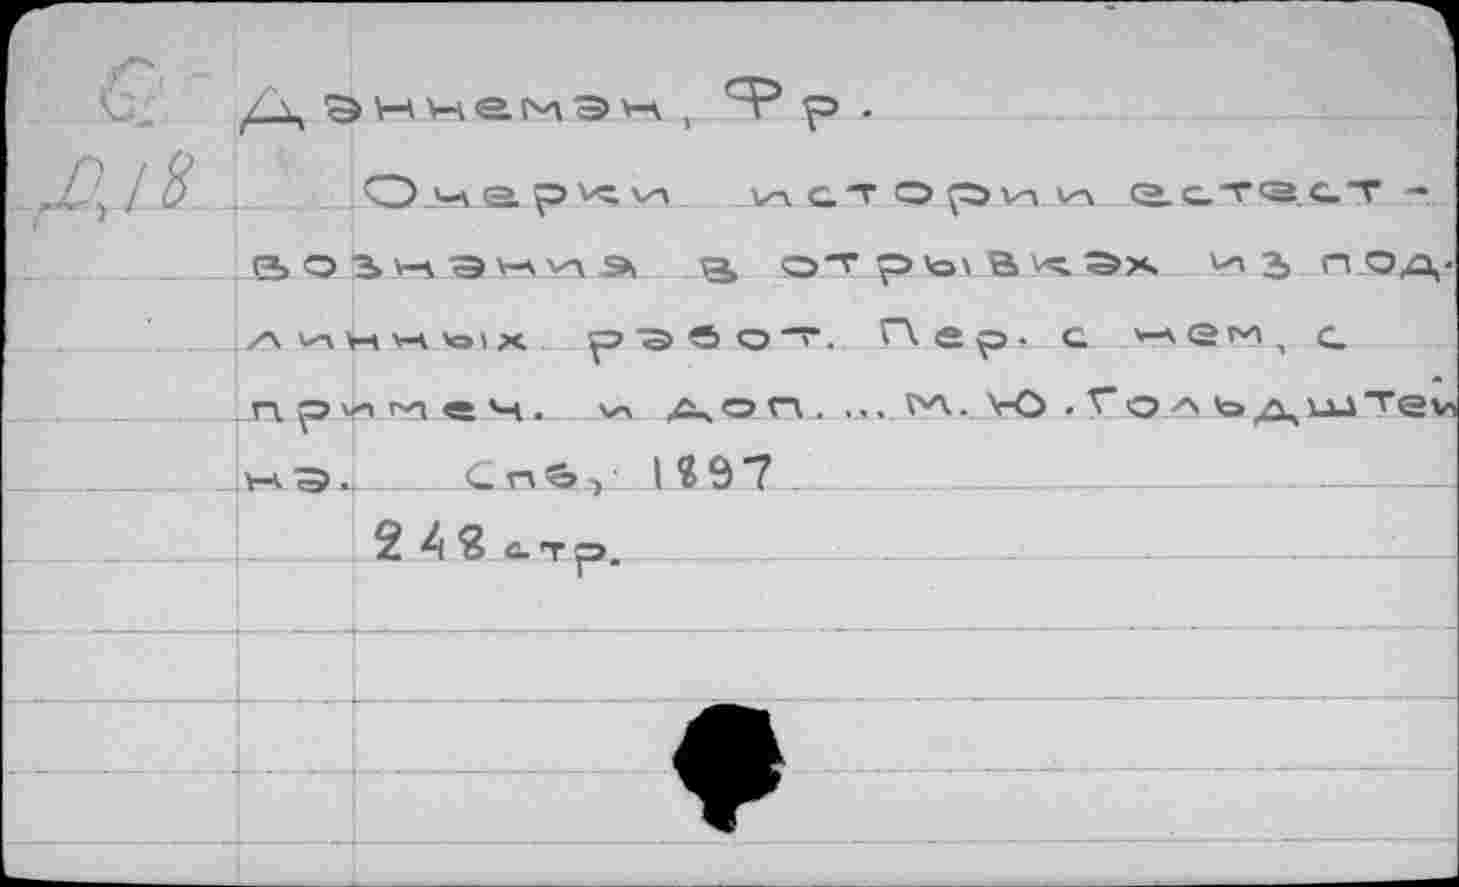 Б
Даннеман, Фр.
Д18
Очерки истории естест-
вознания в отрывках из под-
линных работ. Пер. с нем, с
примеч. и доп. ... м. Ю. Гольдштей
на. Спб, 1897
248 стр.